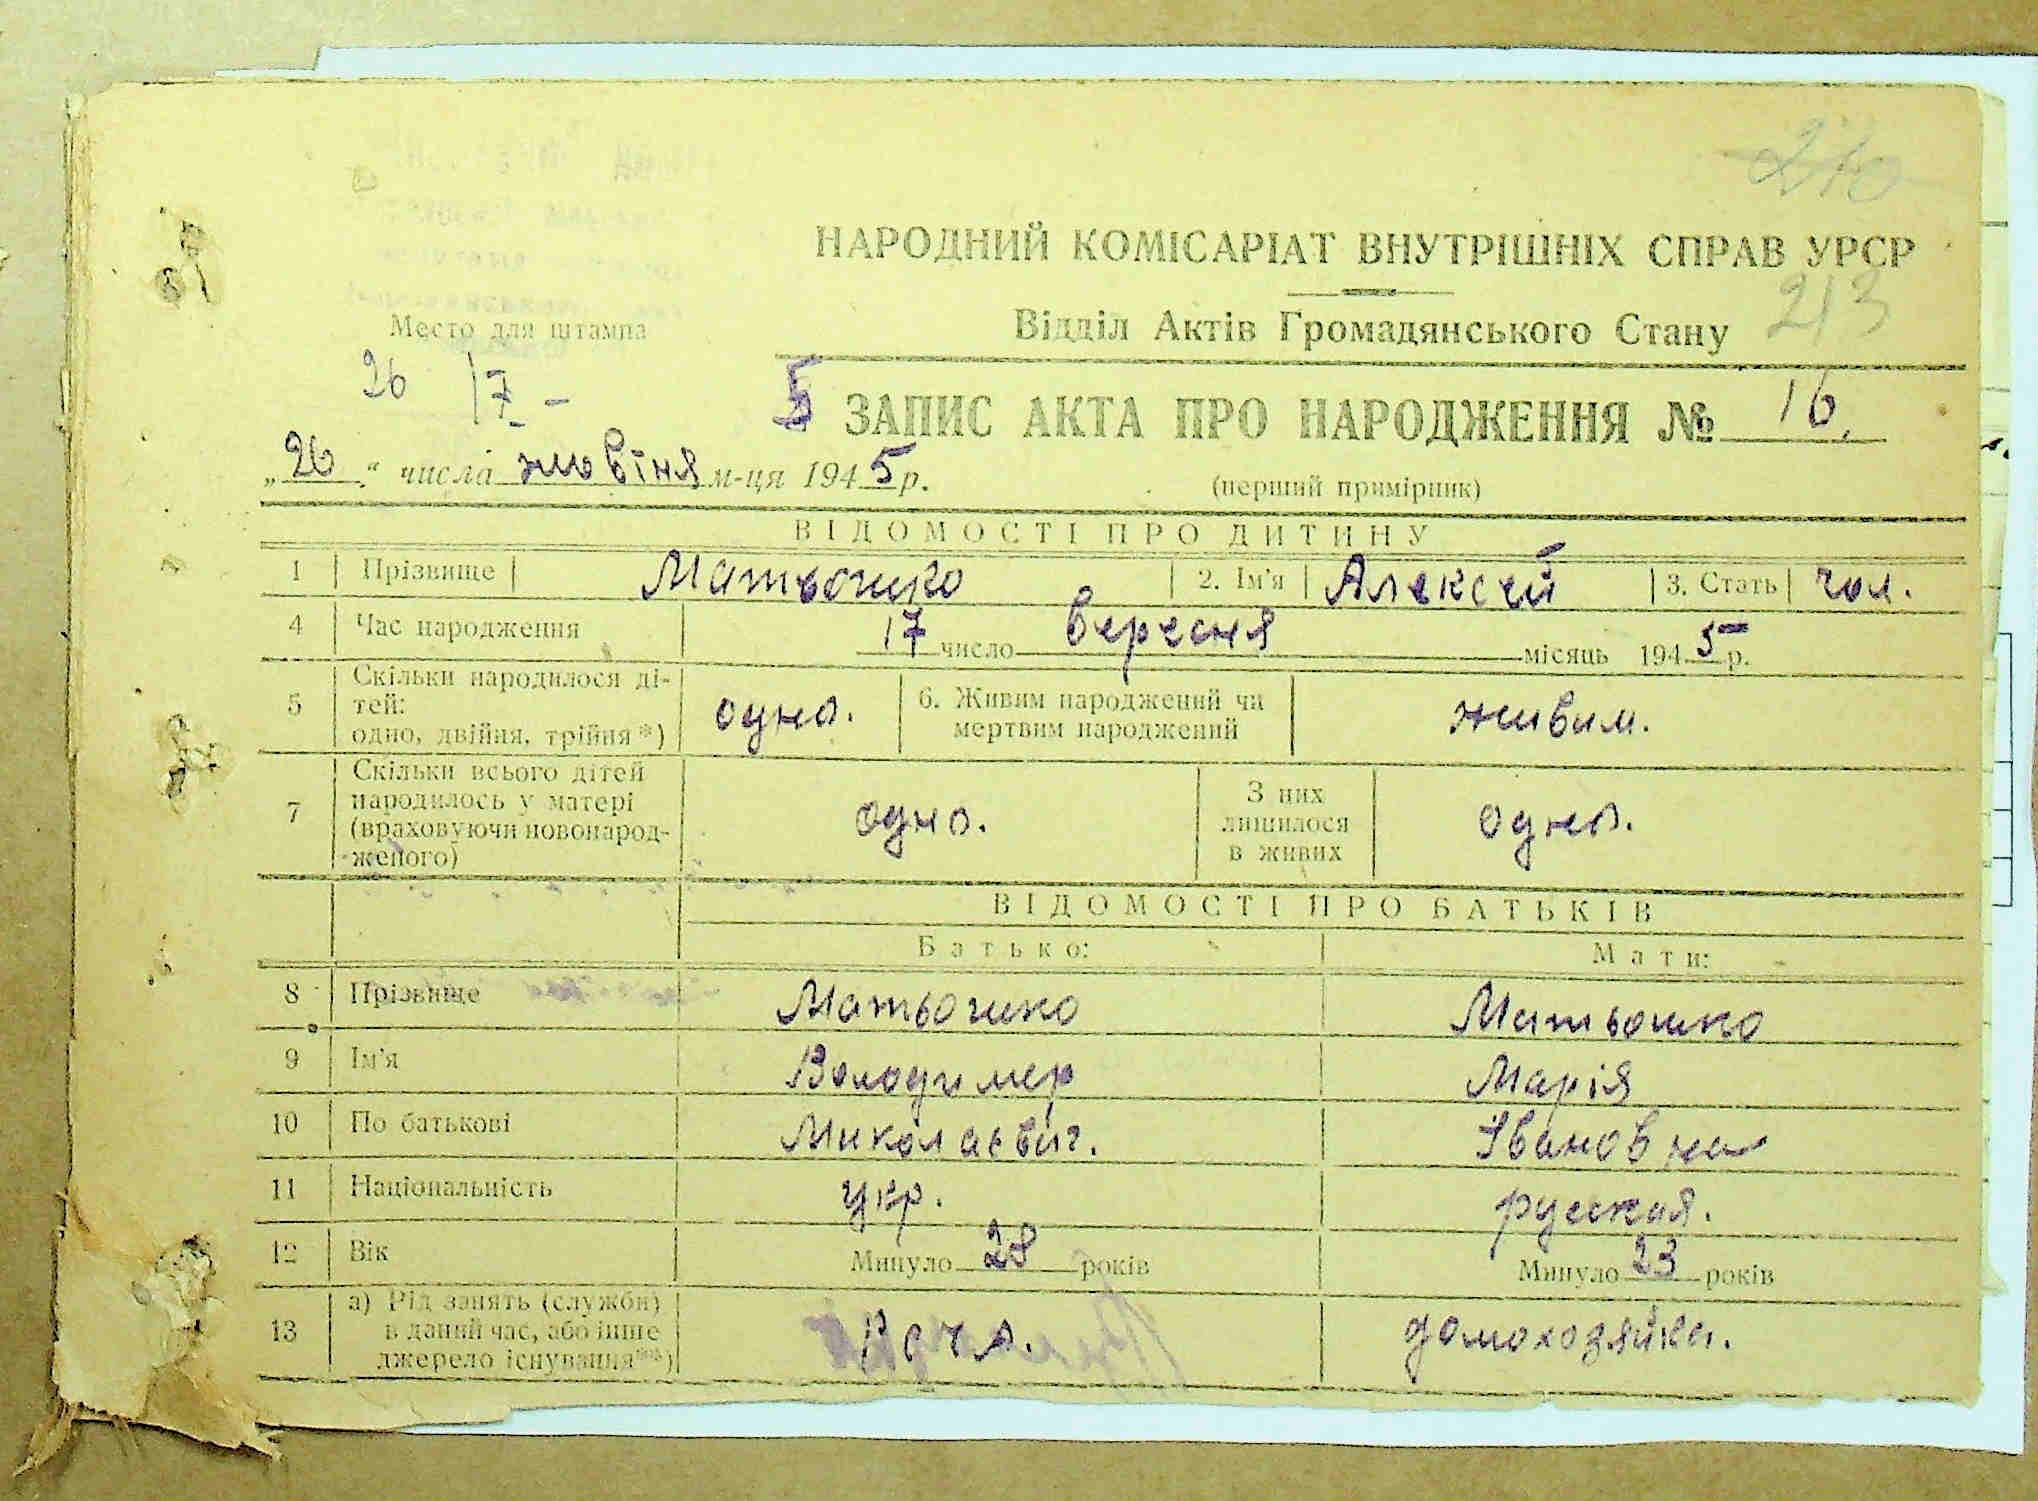 210
НАРОДНИЙ КОМІСАРІАТ ВНУТРІШНІХ СПРАВ УРСР
213
Место для штампа
Відділ Актів Громадянського Стану
26 17 -
5 ЗАПИС АКТА ПРО НАРОДЖЕННЯ № 16.
„26“ числа жовтня м-ця 1945 р.
(перший примірник)
ВІДОМОСТІ ПРО ДИТИНУ
1 Прізвище Матьошко 2. Ім'я Алексей 3. Стать чол.
4 Час народження 17 число вересня місяць 1945 р.
5 Скільки народилося ді-
тей:
одно, двійня, трійня*) одно. 6. Живим народжений чи
мертвим народжений живим.
7 Скільки всього дітей
народилось у матері
(враховуючи новонарод-
женого) одно. З них
лишилося
в живих одно.
ВІДОМОСТІ ПРО БАТЬКІВ
Батько: Мати:
8 Прізвище Матьошко Матьошко
9 Ім'я Володимер Марія
10 По батькові Миколаєвич. Івановна
11 Національність укр. русская.
12 Вік Минуло 28 років Минуло 23 років
13 а) Рід занять (служби)
в даний час, або інше
джерело існування**) домохозяйка.